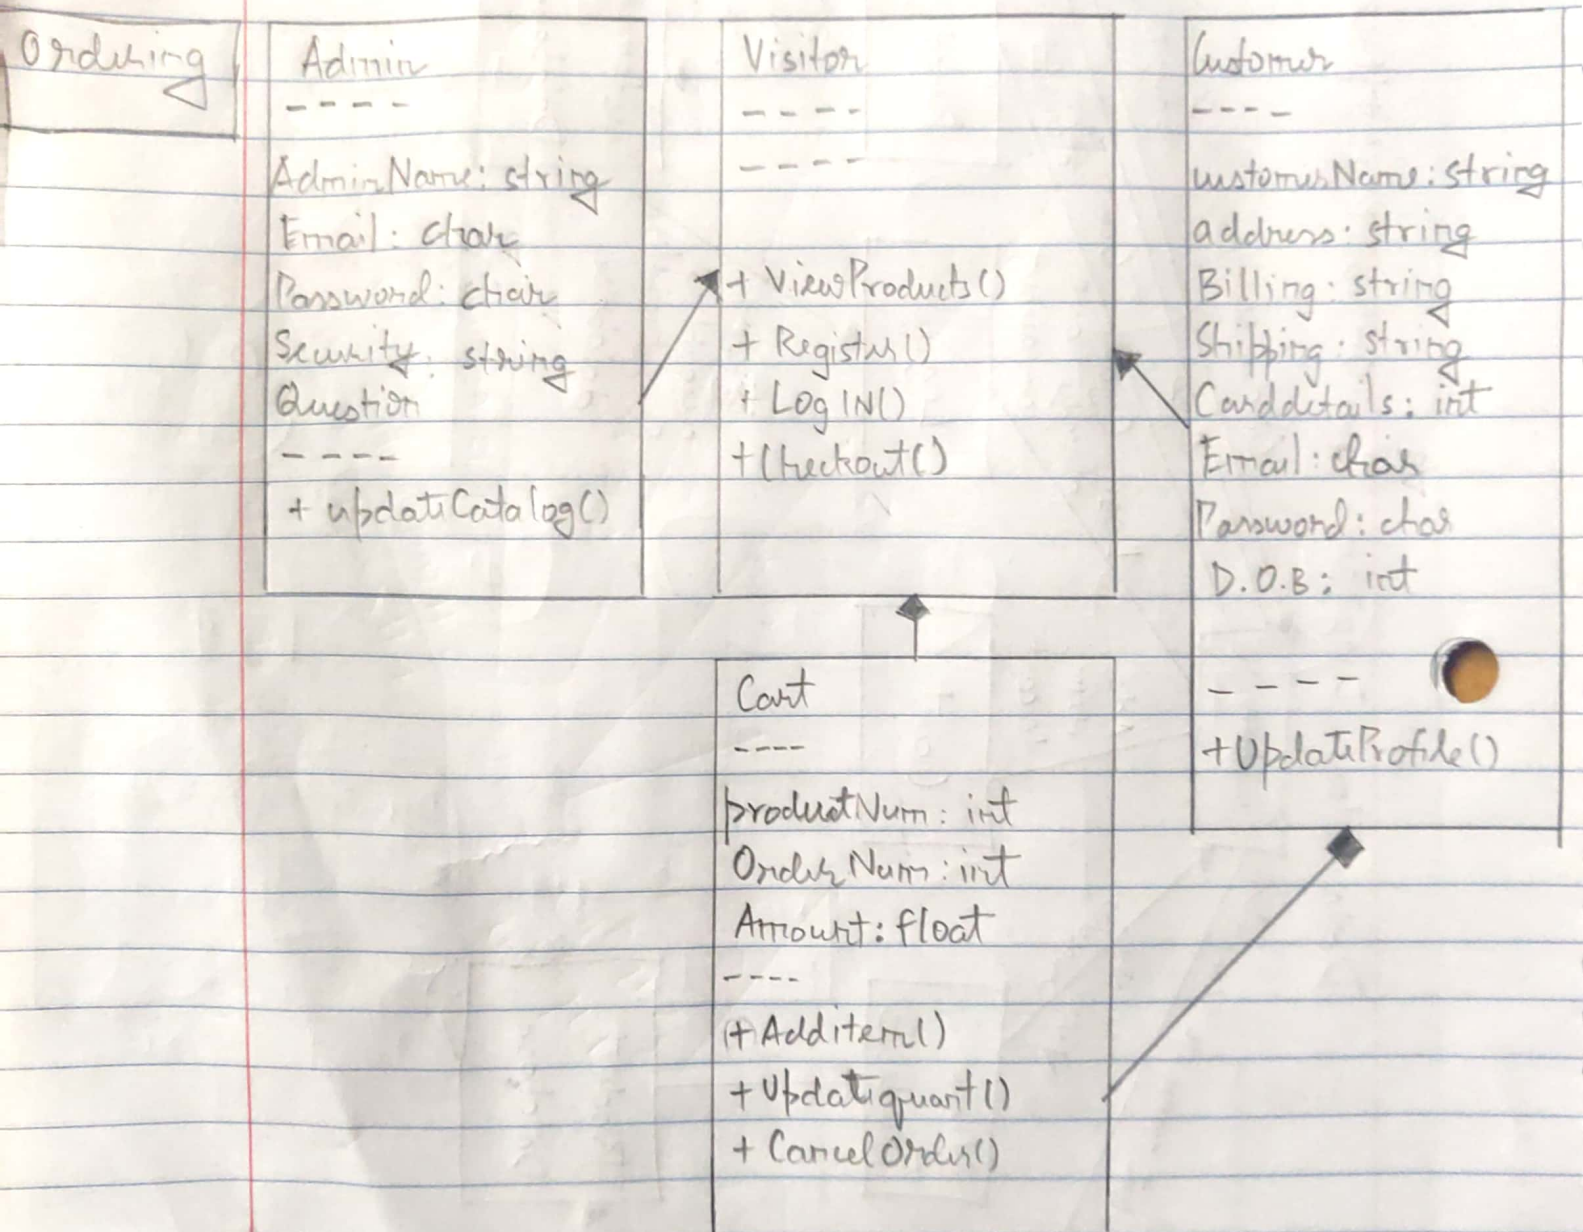 Ordering
Admin
----
AdminName: string
Email: char
Password: char
Security: string
Question
----
+ updateCatalog()
Visitor
----
----
+ ViewProducts()
+ Register()
+ Log IN()
+Checkout()
Customer
----
customerName: string
address: string
Billing: string
Shipping: string
Carddetails: int
Email: char
Password: char
D.O.B: int
----
+UpdateProfile()
Cart
----
productNum: int
OrderNum: int
Amount: float
----
+ Additem()
+ Updatequant()
+ CancelOrder()